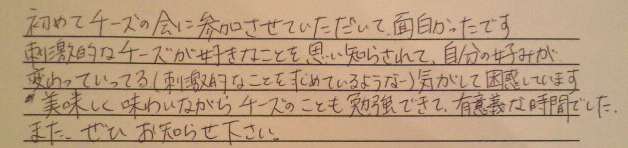 初めてチーズの会に参加させていただいて、面白かったです
刺激的なチーズが好きなことを思い知らされて、自分の好みが
変わっていってる(刺激的なことを求めているような-)気がして困惑しています
美味しく味わいながらチーズのことも勉強できて、有意義な時間でした。
また、ぜひお知らせ下さい。